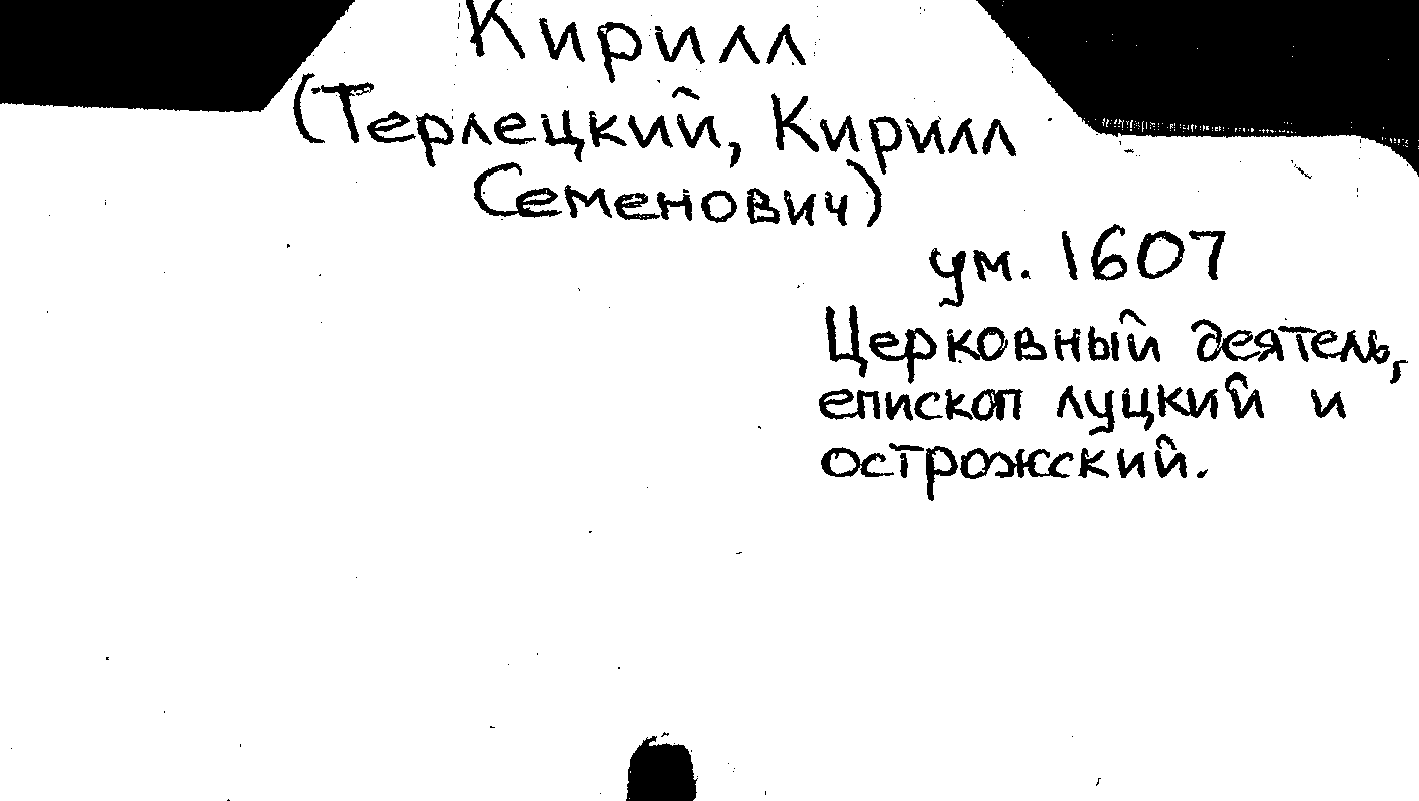 Кирилл
(Терлецкий, Кирилл
Семенович)
ум. 1607
Церковный деятель,
епископ луцкий и
острожский.